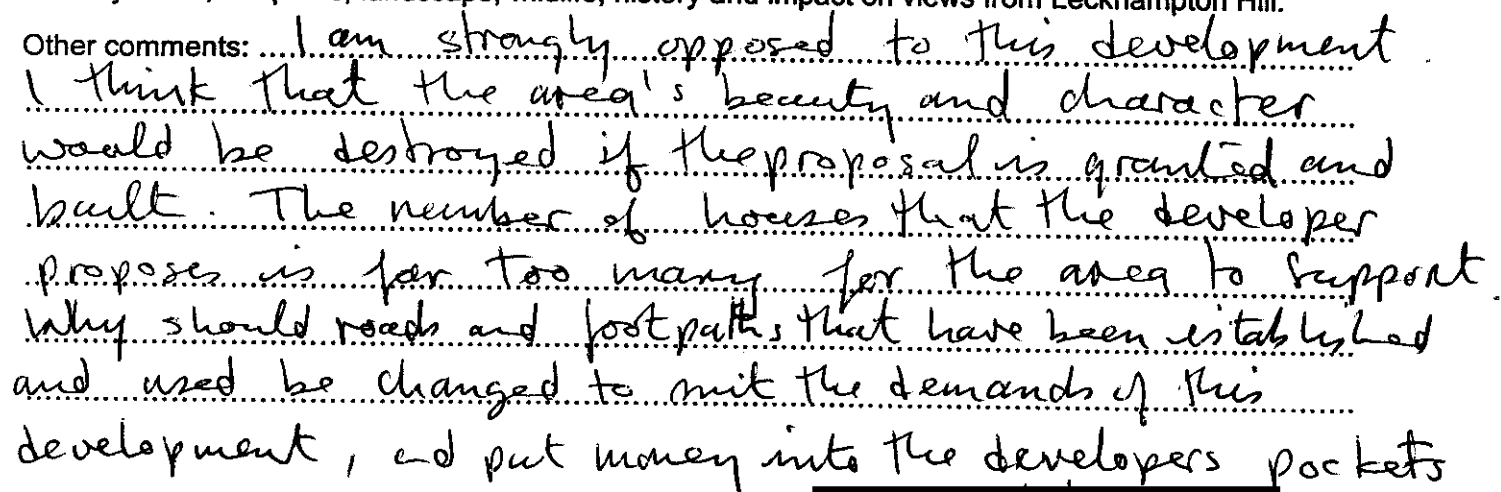 history and impact on views from Leckhampton Hill.
Other comments: I am strongly opposed to this development.
I think that the area's beauty and character
would be destroyed if the proposal is granted and
built. The number of houses that the developer
proposes is far too many for the area to support.
Why should roads and footpaths that have been established
and used be changed to suit the demands of this
development, and put money into the developers pockets